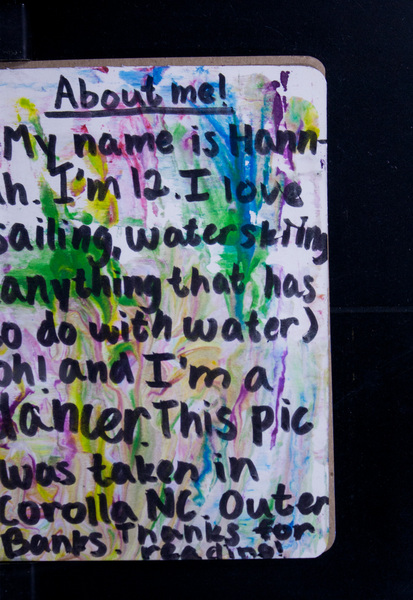 About me!
My name is Hann-
ah. I'm 12. I love
sailing, waterskiing
anything that has
to do with water)
oh! and I'm a
dancer This pic
was taken in
Corolla NC. Outer
Banks. Thanks for
reading!